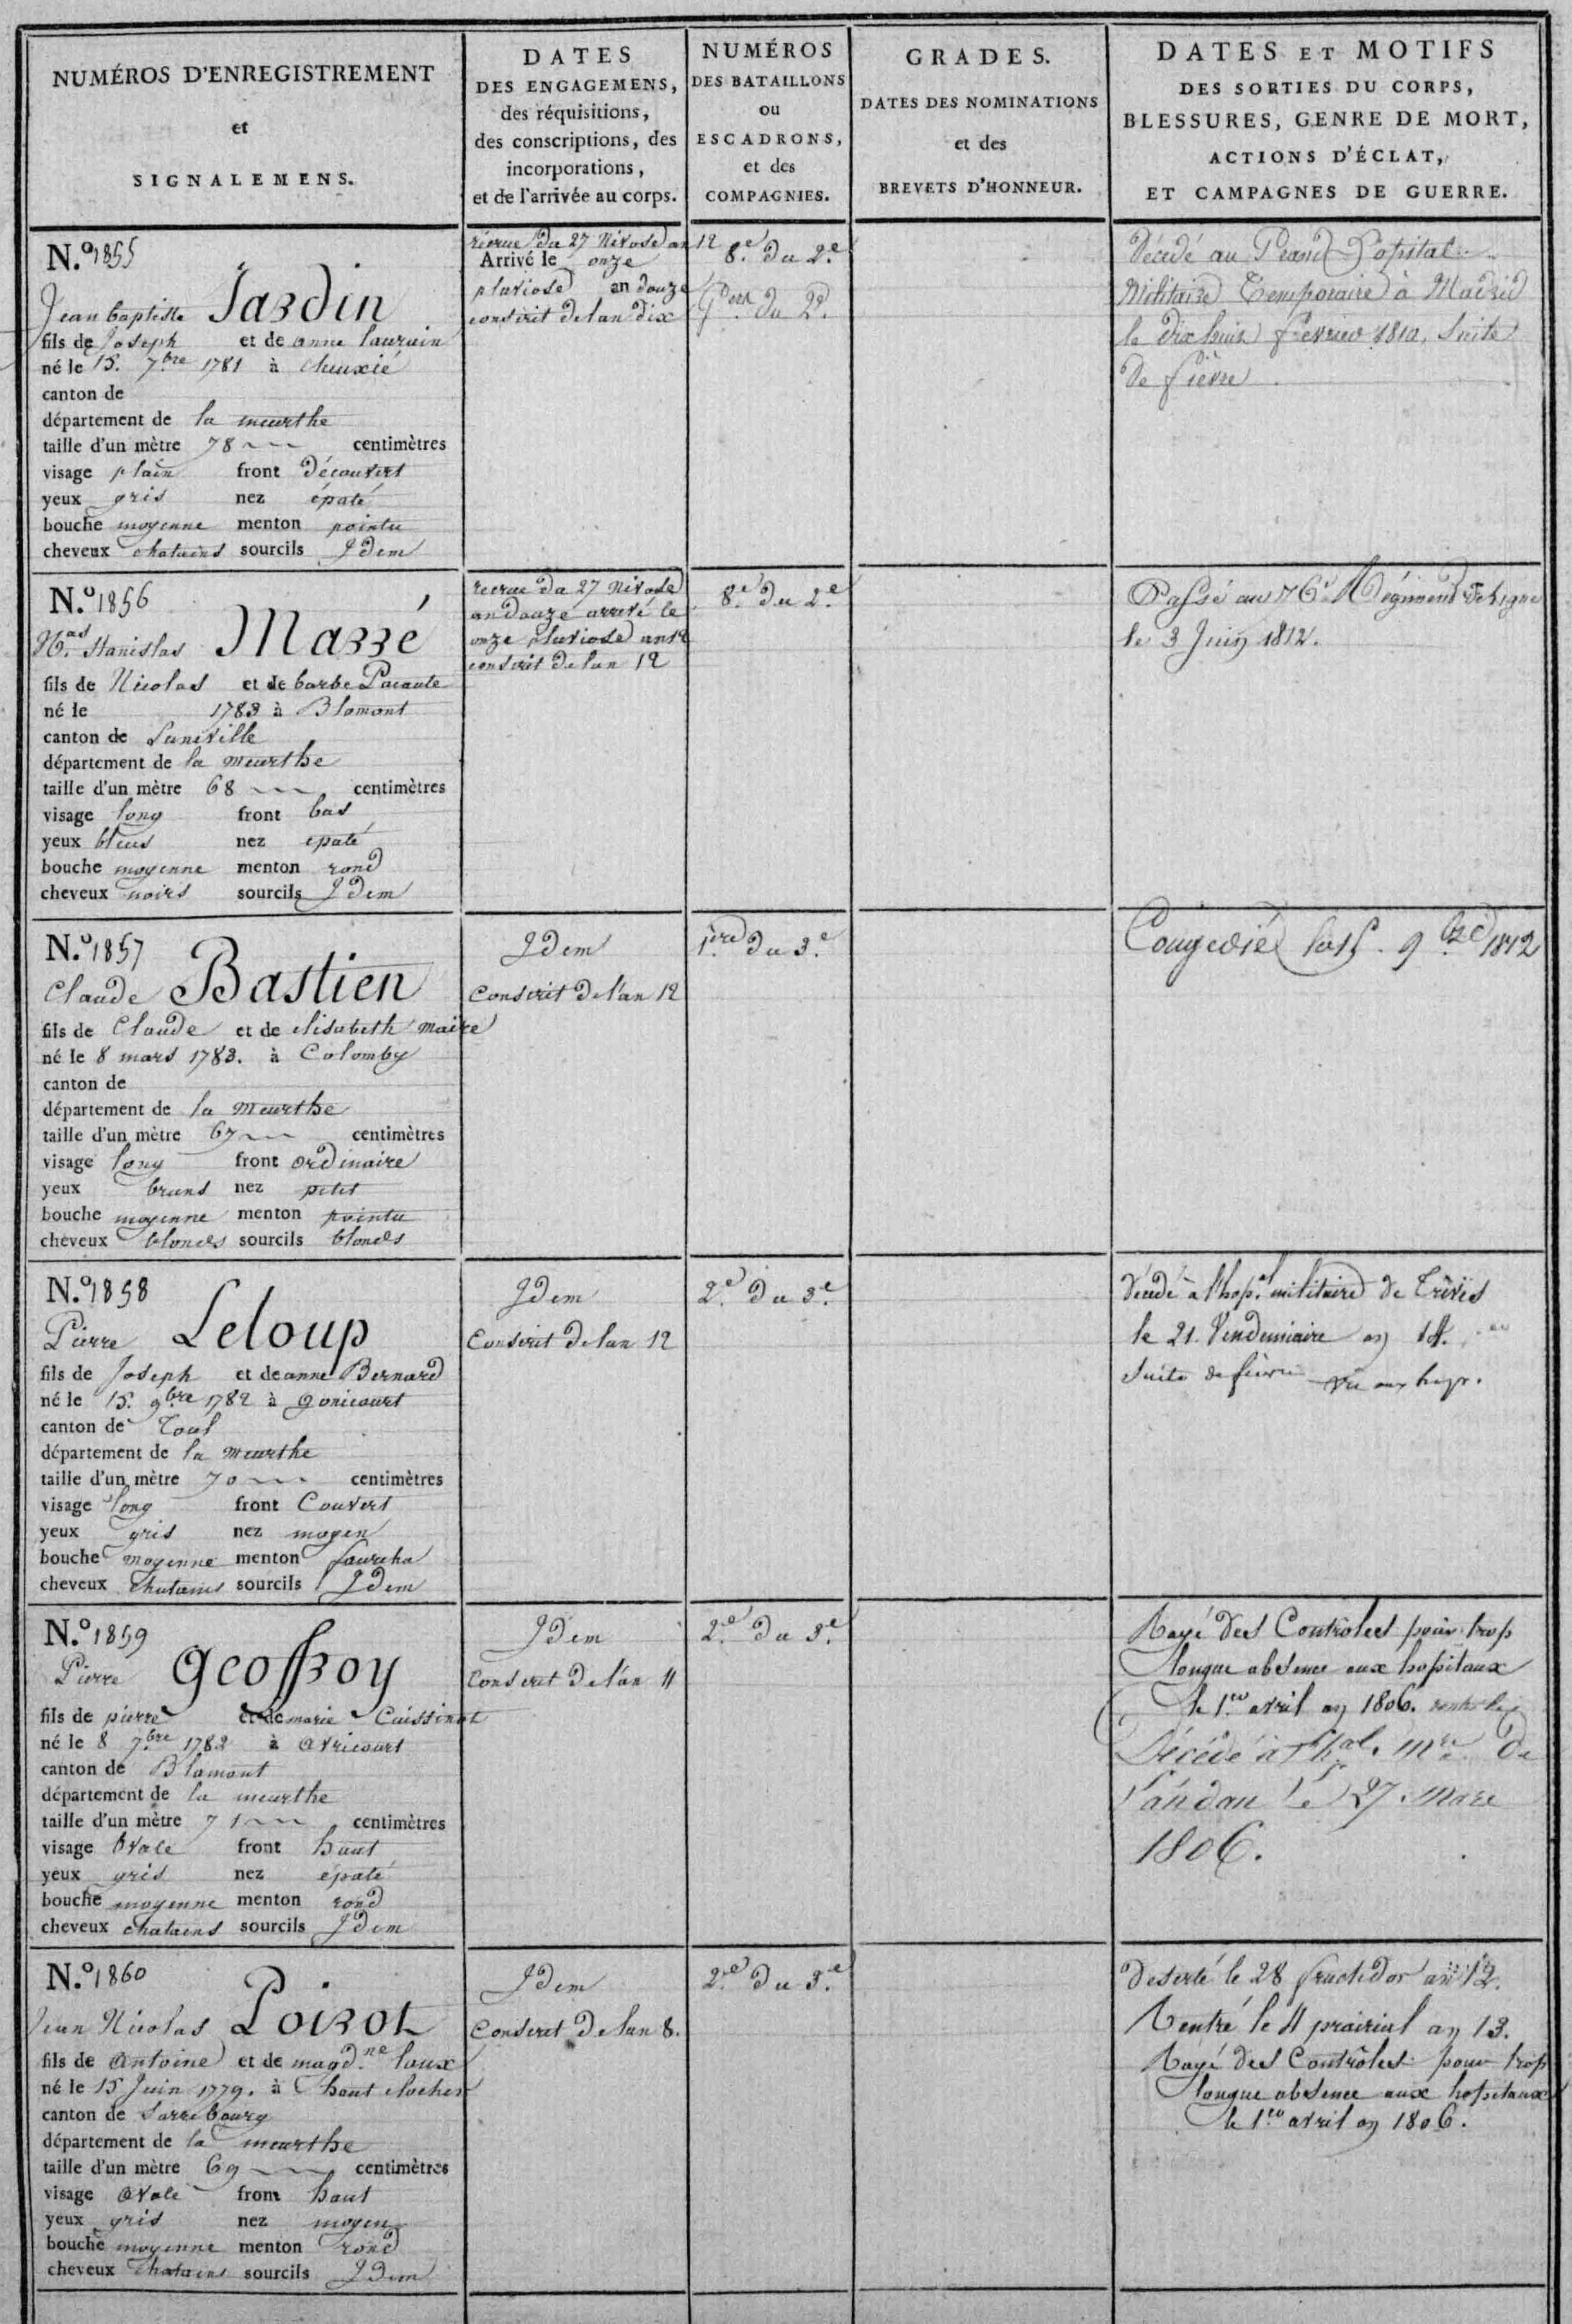 NUMÉROS D'ENREGISTREMENT
et
SIGNALEMENS.
DATES
DES ENGAGEMENS,
des réquisitions,
des conscriptions, des
incorporations,
et de l'arrivée au corps.
NUMÉROS
DES BATAILLONS
ou
ESCADRONS,
et des
COMPAGNIES.
GRADES.
DATES DES NOMINATIONS
et des
BREVETS D'HONNEUR.
DATES ET MOTIFS
DES SORTIES DU CORPS,
BLESSURES, GENRE DE MORT,
ACTIONS D'ÉCLAT,
ET CAMPAGNES DE GUERRE.
N.o 1855
Jean baptiste Jardin
fils de Joseph et de anne
né le 15. 7.bre 1781 à
canton de
département de la meurthe
taille d'un mètre 78 centimètres
visage plain front découvert
yeux gris nez épaté
bouche moyenne menton pointu
cheveux chatains sourcils Idem
recrue du 27 Nivose an 12
Arrivé le onze
pluviose an douze
conscrit de lan dix
8.e du 2.e
du 2.e
Décédé au Grand Hopital
Militaire Temporaire à Madrid
le dix huit fevrier 1810, Suite
de fièvre
N.o 1856
N.as Stanislas Massé
fils de Nicolas et de barbe
né le 1783 à Blamont
canton de Luneville
département de la meurthe
taille d'un mètre 68 centimètres
visage long front bas
yeux bleus nez epaté
bouche moyenne menton rond
cheveux noirs sourcils Idem
recrue du 27 Nivose
an douze arrivé le
onze pluviose an 12
conscrit de lan 12
8.e du 2.e
Passé au 76.e Régiment de Ligne
le 3 Juin 1812.
N.o 1857
Claude Bastien
fils de Claude et de elisabeth maire
né le 8 mars 1783. à Colomby
canton de
département de la meurthe
taille d'un mètre 67 centimètres
visage long front ordinaire
yeux bruns nez petit
bouche moyenne menton pointu
cheveux blonds sourcils blonds
Idem
Conscrit de l'an 12
1.ere du 3.e
Congedié le 15. 9.bre 1812
N.o 1858
Pierre Leloup
fils de Joseph et de anne Bernard
né le 15. 9.bre 1782 à gonicourt
canton de Toul
département de la meurthe
taille d'un mètre 70 centimètres
visage long front Couvert
yeux gris nez moyen
bouche moyenne menton fourchu
cheveux chatains sourcils Idem
Idem
Conscrit de lan 12
2.e du 3.e
décédé à l'hop.l militaire de Trèves
le 21. Vendemiaire an 14.
Suite de fievre
N.o 1859
Pierre Geoffroy
fils de pierre et de marie Cuissinot
né le 8 7.bre 1782 à avricourt
canton de Blamont
département de la meurthe
taille d'un mètre 71 centimètres
visage Ovale front haut
yeux gris nez épaté
bouche moyenne menton rond
cheveux chatains sourcils Idem
Idem
Conscrit de l'an 11
2.e du 3.e
Rayé des Controles pour trop
longue absence aux hopitaux
le 1.er avril an 1806.
Décédé à l'hal. m.re de
Landau le 27. Mars
1806.
N.o 1860
Jean Nicolas Poirot
fils de antoine et de magd.ne laux
né le 15 Juin 1779. à haut clocher
canton de Sarrebourg
département de la meurthe
taille d'un mètre 69 centimètres
visage ovale front haut
yeux gris nez moyen
bouche moyenne menton rond
cheveux chatains sourcils Idem
Idem
Conscrit de lan 8.
2.e du 3.e
deserté le 28 fructidor an 12.
Rentré le 11 prairial an 13.
Rayé des Contrôles pour trop
longue absence aux hopitaux
le 1.er avril an 1806.